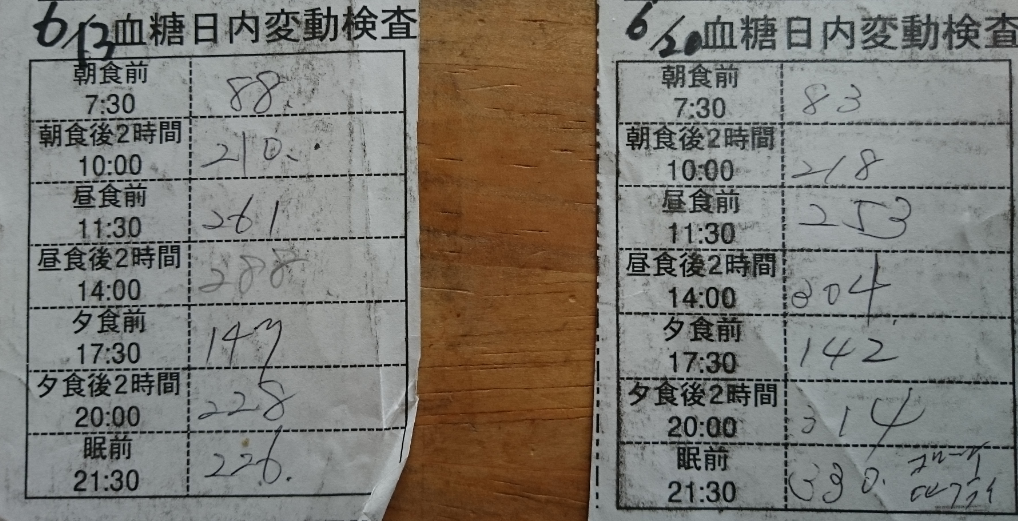 6/13 血糖日内変動検査
朝食前
7:30 88.
朝食後2時間
10:00 210.
昼食前
11:30 261
昼食後2時間
14:00 288
夕食前
17:30 147
夕食後2時間
20:00 228
眠前
21:30 226.
6/20 血糖日内変動検査
朝食前
7:30 83
朝食後2時間
10:00 218
昼食前
11:30 253
昼食後2時間
14:00 304
夕食前
17:30 142
夕食後2時間
20:00 314
眠前
21:30 330.